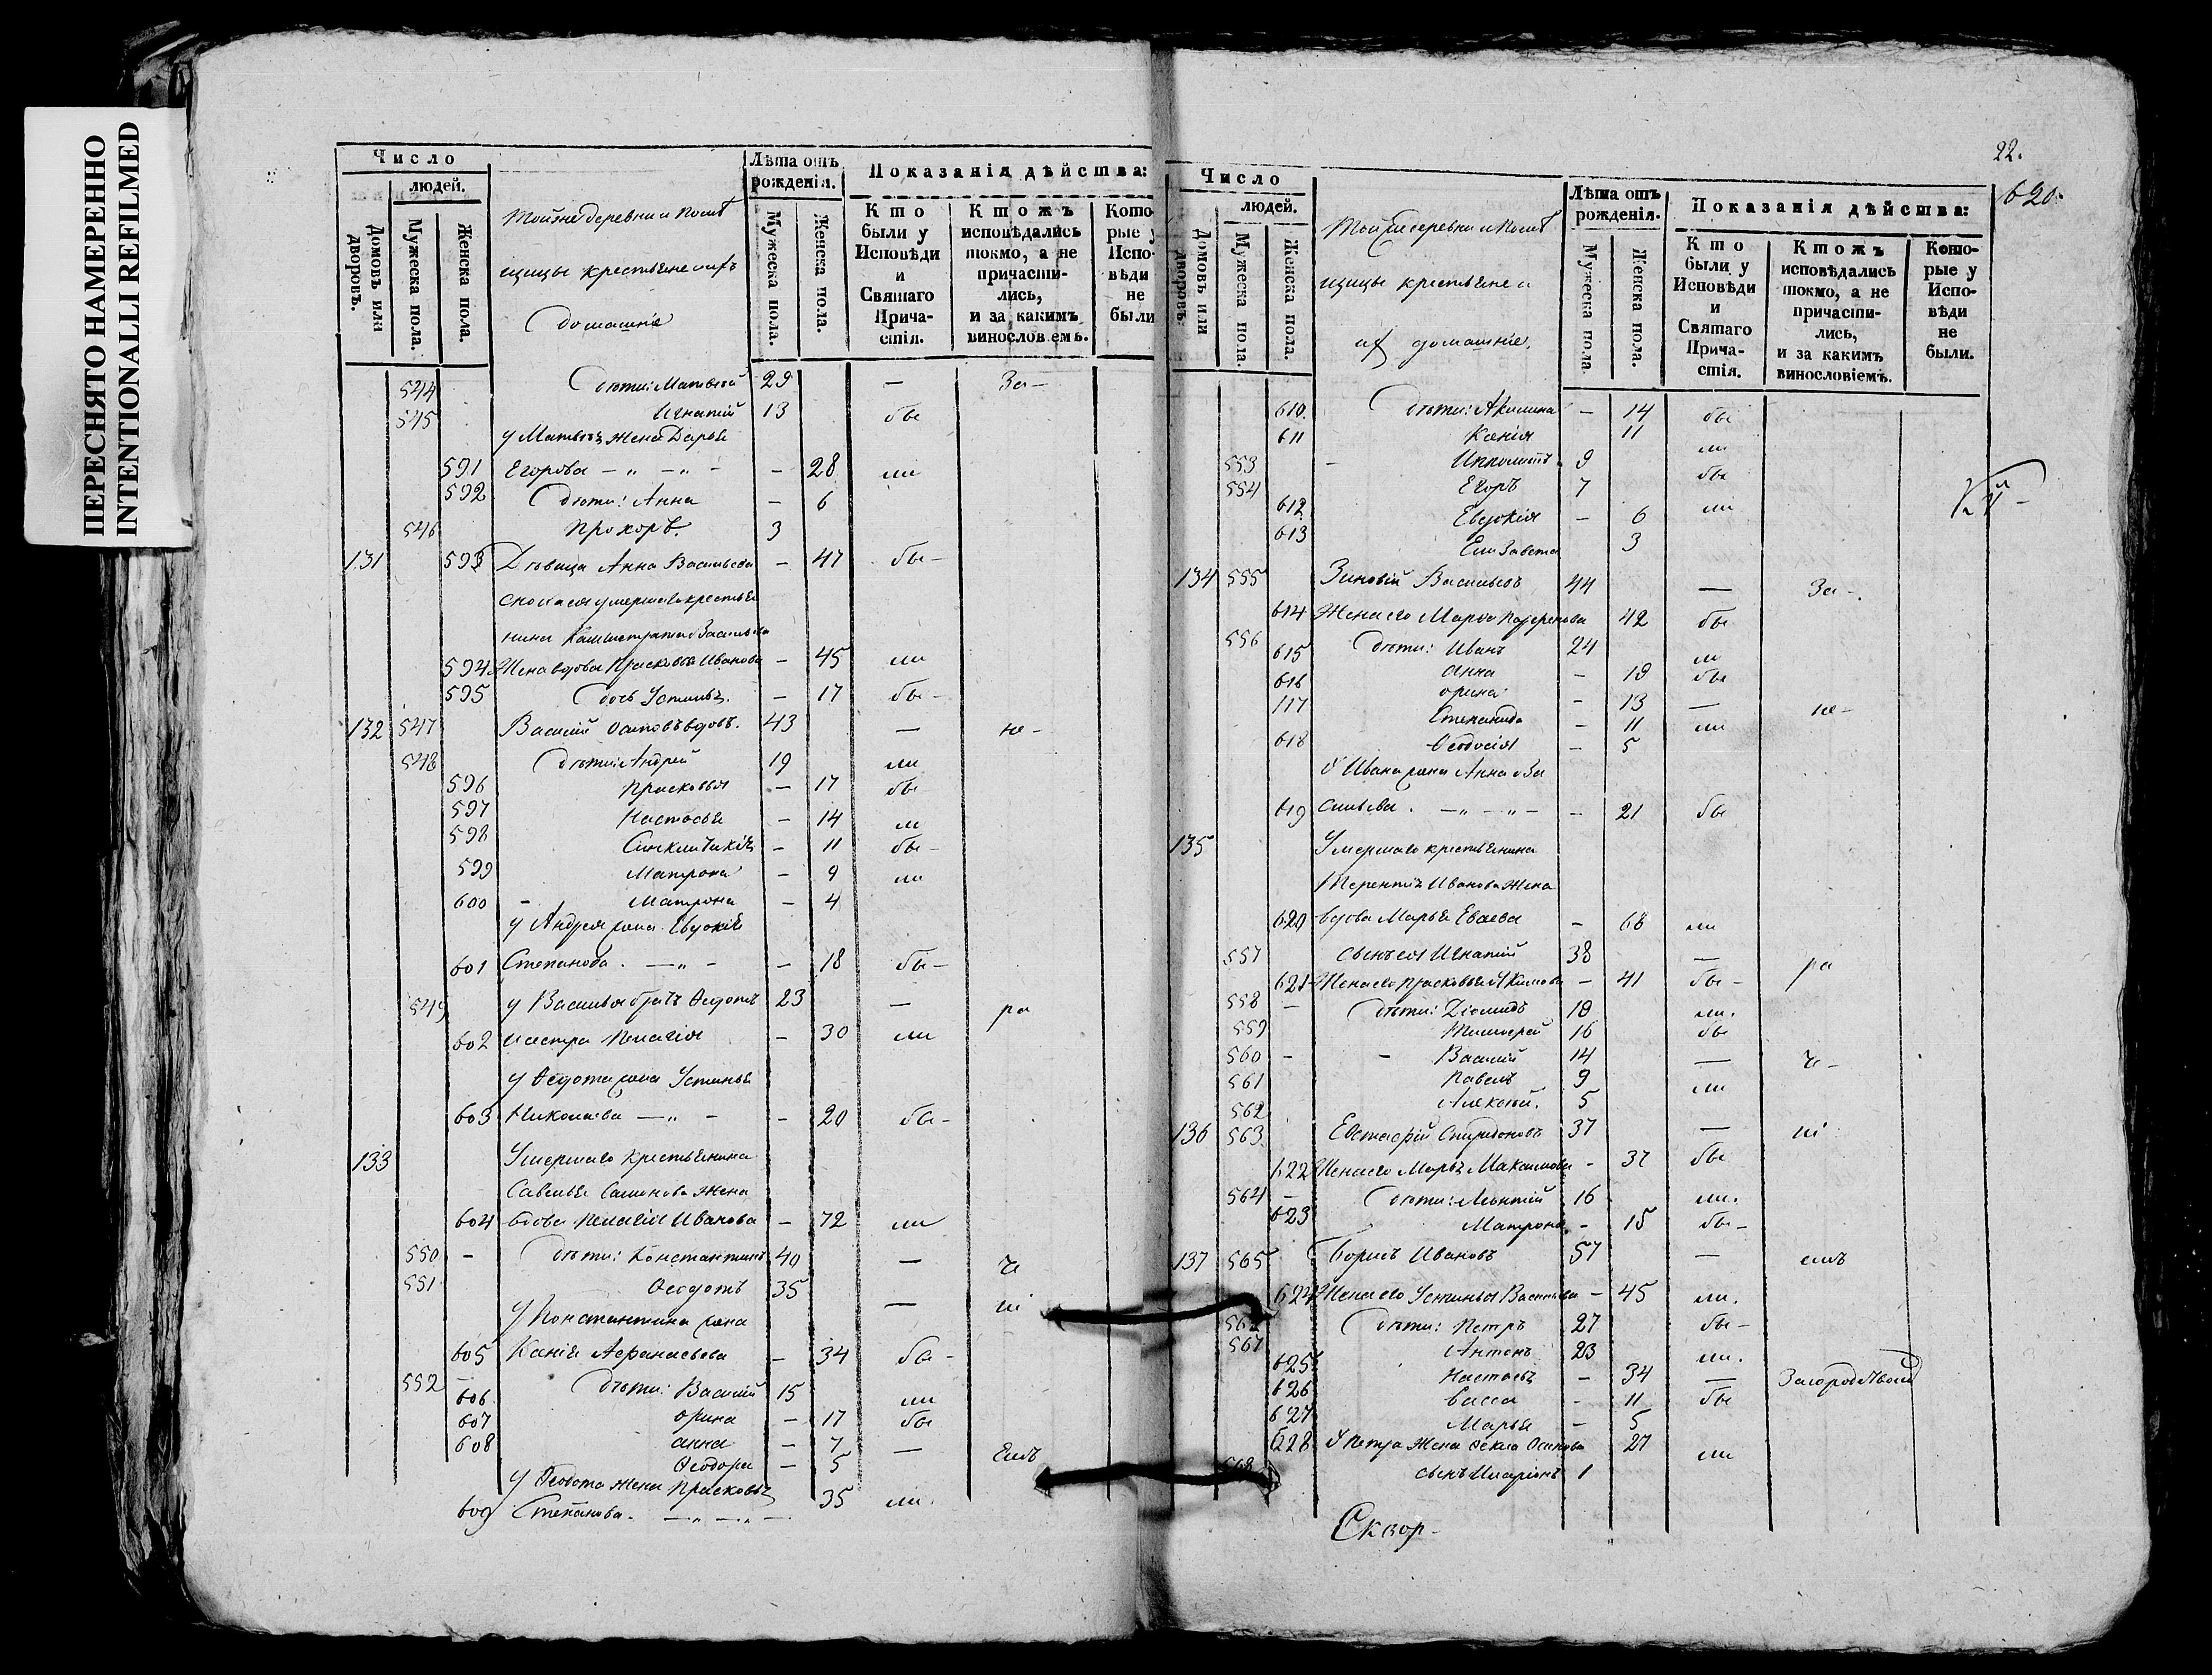 ПЕРЕСНЯТО НАМЕРЕННО
INTENTIONALLI REFILMED
Число
людей.
Домовъ или дворовъ.
Мужеска пола.
Женска пола.
Тойже деревни и Помѣ
щицы крестьяне ихъ
домашніе
Лѣта отъ рожденія.
Мужеска пола.
Женска пола.
Показанія дѣйства:
Кто были у Исповѣди и Святаго Причастія.
Ктожъ исповѣдались токмо, а не причастились, и за какимъ винословіемъ.
Которые у Исповѣди не были
544 дѣти: Матвей 29 — За —
545 Игнатий 13 бы
у Матвея жена Дарья
591 Егорова — „ — „ — — 28 ли
592 дѣти: Анна — 6
546 Прохоръ. 3
131 593 Дѣвица Анна Васильева — 47 бы —
сноха ея умершаго крестья
нина Калистрата Васильева
594 Жена вдова Прасковья Иванова — 45 ли
595 дочь Устинья — 17 бы —
132 547 Василий вдовъ. 43 — не —
548 дѣти: Андрей 19 ли
596 Прасковья — 17 бы
597 Настасья — 14 ли
598 Синклитикія — 11 бы —
599 Матрона — 9 ли
600 — Матрона — 4
у Андрея жена Евдокія
601 Степанова. — „ — — 18 бы —
549 у Василья братъ Федотъ 23 — ра
602 и сестра Пелагія — 30 ли
у Федота жена Устинья
603 Николаева — „ — — 20 бы —
133 Умершаго крестьянина
Савелья Самонова Жена
604 вдова Пелагія Иванова — 72 ли
550 — дѣти: Константинъ 40 — че
551 Федотъ 35 — ні
у Константина жена
605 Ксенія Афанасьева — 34 бы —
552 — дѣти: Василий 15 ли
606 Орина — 17 бы
607 анна — 7 — Емъ
608 Феодора — 5
у Федота жена Прасковья
609 Степанова. — „ — „ — 35 ли.
22.
620.
Число
людей.
Домовъ или дворовъ.
Мужеска пола
Женска пола.
Той же деревни и Помѣ
щицы крестьяне и
их домашніе.
Лѣта отъ рожденія.
Мужеска пола
Женска пола.
Показанія дѣйства:
Кто были у Исповѣди и Святаго Причастія.
Ктожъ исповѣдались токмо, а не причастились, и за какимъ винословіемъ.
Которые у Исповѣди не были.
610. дѣти: Акилина — 14 бы
611 Ксенія 11 ли
553 — Ипполитъ. 9 бы
554 Егоръ 7
612 Евдокія — 6 ли
613 Елизавета 3
134 555 Зиновій Васильевъ 44 — За —.
614 Жена его Марфа Парфенова 42 бы
556 дѣти: Иванъ 24 ли
615 Анна — 19 бы
616 орина — 13 — не —
117 Степанида — 11 ли
618 Феодосія — 5
У Ивана жена Анна Ва
619 сильева. — „ — „ — — 21 бы
135 Умершаго крестьянина
Терентія Иванова Жена
620 вдова Марья Евсеева — 68 ли
557 сынъ ея Игнатий 38 — ра
621 Жена его Прасковья Акимова — 41 бы —
558 — дѣти: Діомидъ 19 ли.
559 Тимофей 16 бы
560 — — Василий 14 — че —
561 Павелъ 9 ли
562 Алексей. 5
136 563 Евстафій Спиридоновъ 37 — ні
622 Жена его Марья Максимова — 37 бы
564 — дѣти: Леонтий 16 ли.
623 Матрона — 15 бы —
137 565 Борисъ Ивановъ 57 — емъ
624 Жена его Устинья Васильева — 45 ли.
566 дѣти: Петръ 27 бы —
567 Антонъ 23 ли.
625 Настасья — 34 —
626 Васса — 11 бы
627 Марья — 5
628 У Петра Жена Фекла Осипова 27 ли
568 сынъ Иларіонъ 1
Сквор —